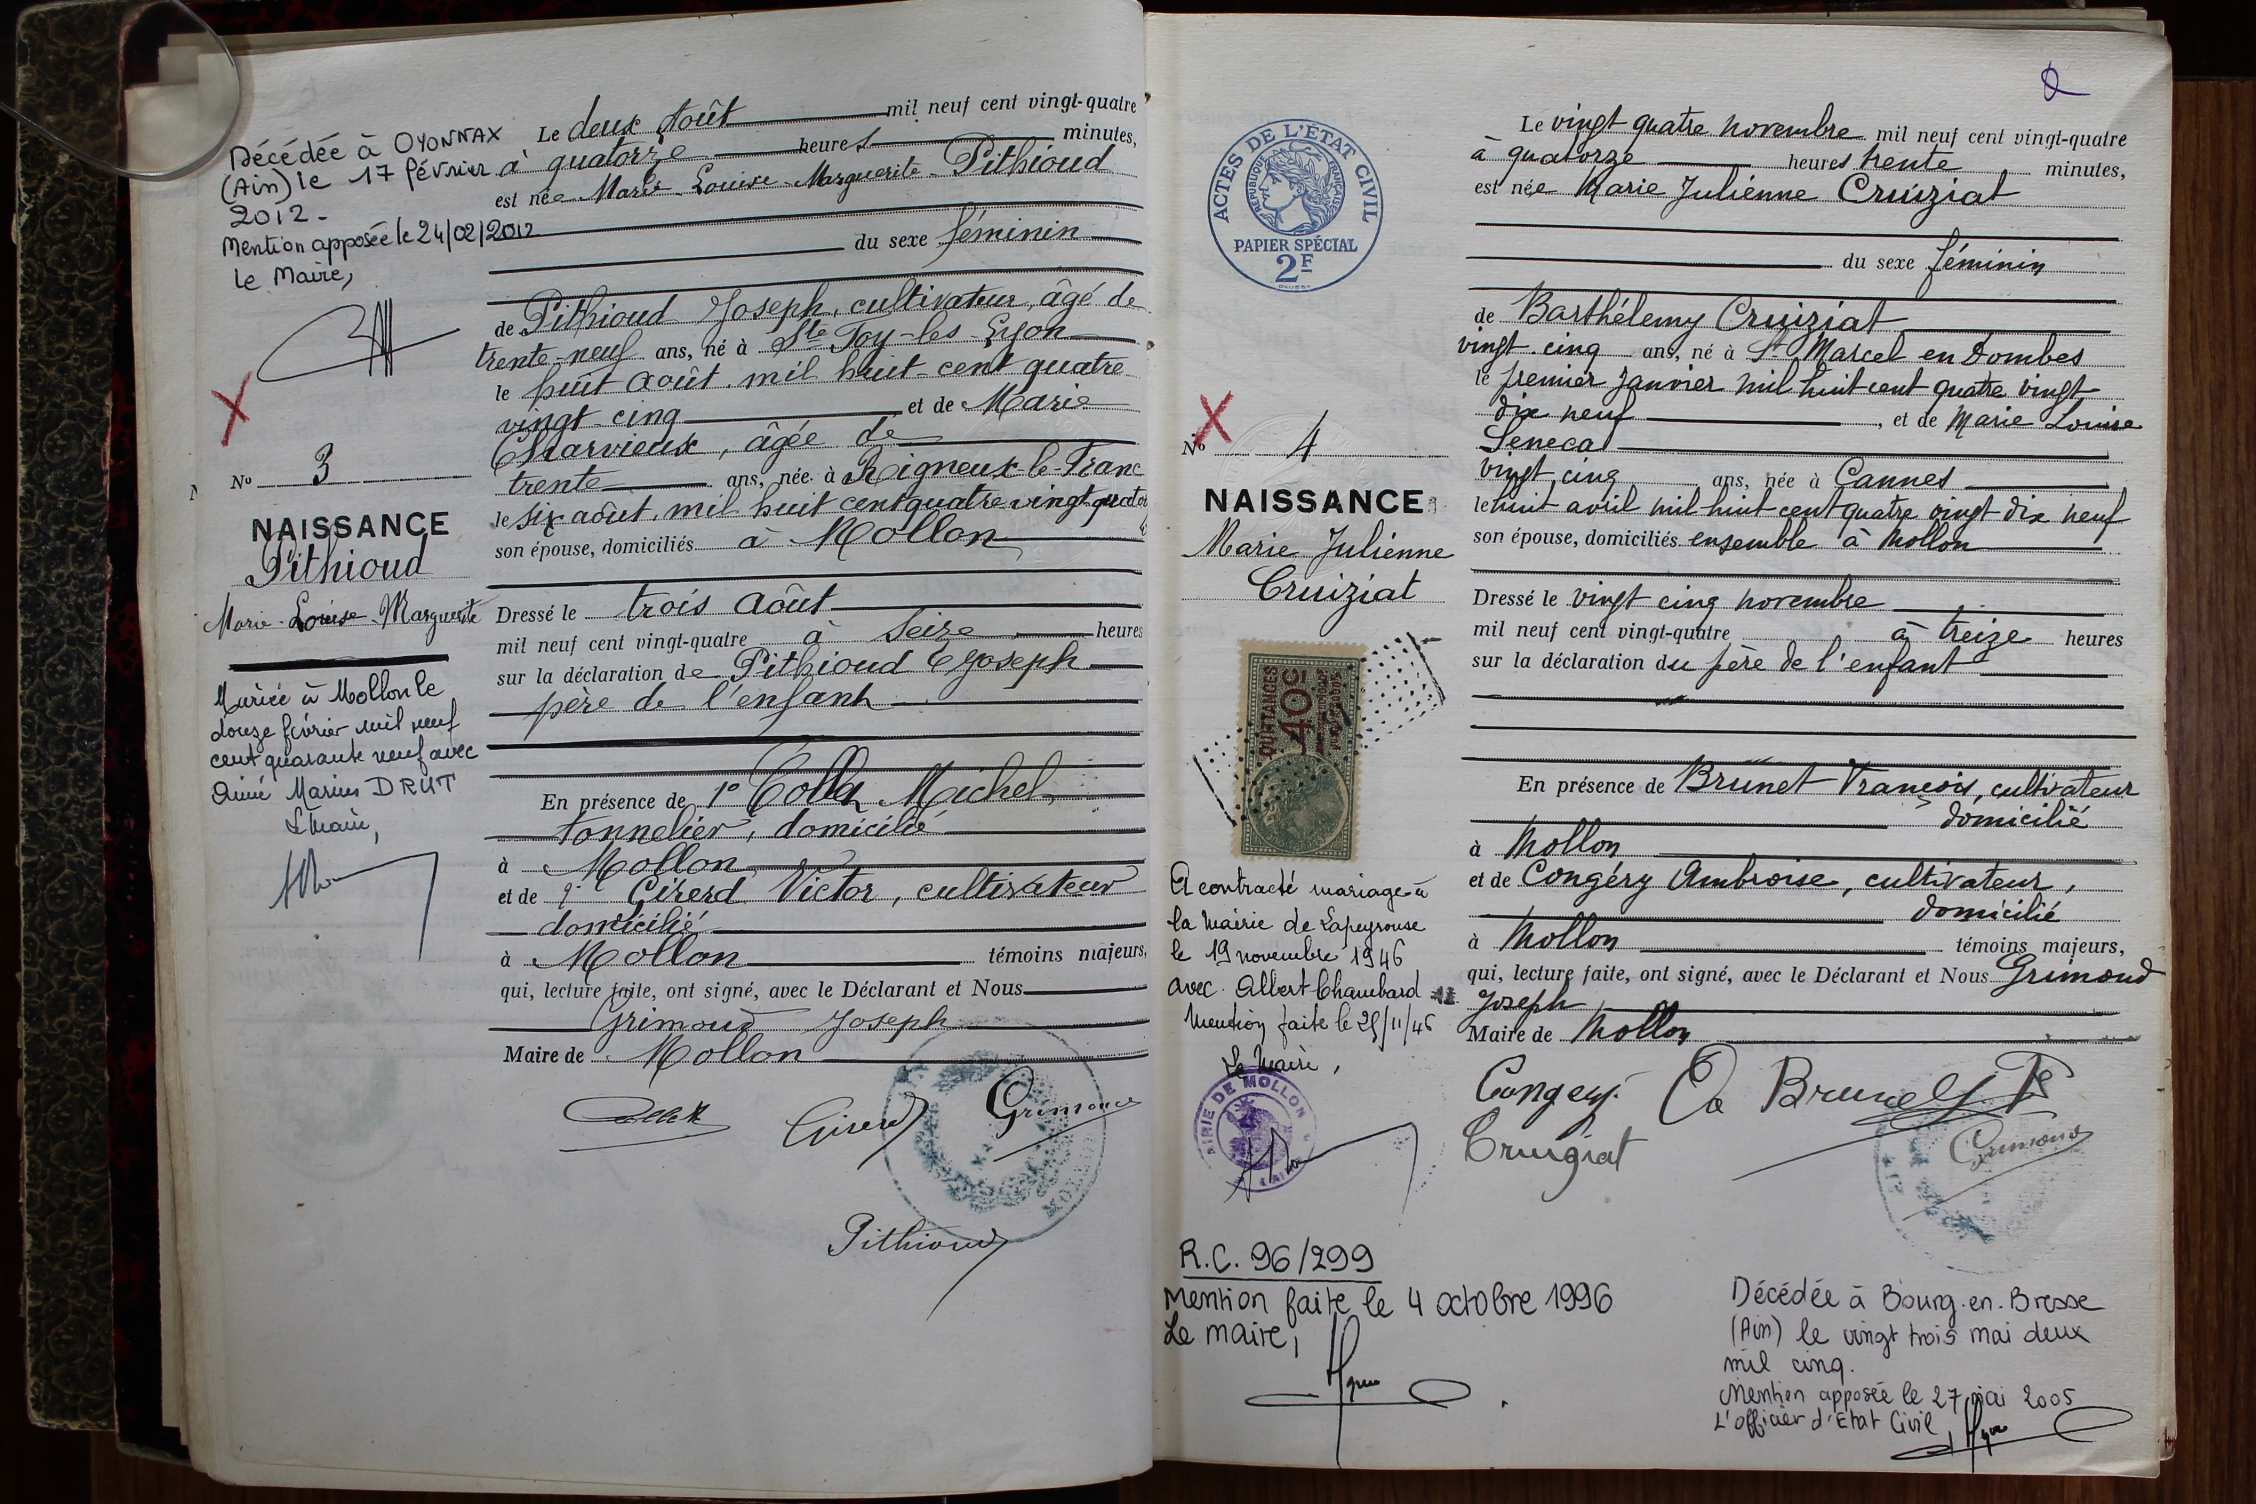 Décédée à OYONNAX
(Ain) le 17 février
2012.
Mention apposée le 24/02/2012
Le Maire,
No 3
NAISSANCE
Pithioud
Marie-Louise-Marguerite
Mariée à Mollon le
douze février mil neuf
cent quarante neuf avec
Aimé Marius DRUT
Le Maire,
Le deux Août mil neuf cent vingt-quatre
à quatorze heures minutes,
est née Marie-Louise-Marguerite Pithioud
du sexe féminin
de Pithioud Joseph, cultivateur, âgé de
trente-neuf ans, né à Ste Foy-les-Lyon
le huit août mil huit-cent quatre
vingt-cinq et de Marie
Charvieux, âgée de
trente ans, née à Rigneux-le-Franc
le six août, mil huit cent quatre vingt quatorze
son épouse, domiciliés à Mollon
Dressé le trois Août
mil neuf cent vingt-quatre à seize heures
sur la déclaration de Pithioud Joseph
père de l'enfant
En présence de 1° Collet Michel,
tonnelier, domicilié
à Mollon
et de 2° Girerd Victor, cultivateur
domicilié
à Mollon témoins majeurs,
qui, lecture faite, ont signé, avec le Déclarant et Nous
Grimoud Joseph
Maire de Mollon
Collet Girerd Grimoud
Pithioud
2
ACTES DE L'ÉTAT CIVIL
RÉPUBLIQUE FRANÇAISE
PAPIER SPÉCIAL
2F
No 4
NAISSANCE
Marie Julienne
Cruiziat
QUITTANCES
40c
A contracté mariage à
la Mairie de Lapeyrouse
le 19 novembre 1946
avec Albert Chambard
Mention faite le 25/11/46
Le Maire,
MAIRIE DE MOLLON
AIN
R.C. 96/299
Mention faite le 4 octobre 1996
Le maire,
Le vingt quatre novembre mil neuf cent vingt-quatre
à quatorze heures trente minutes,
est née Marie Julienne Cruiziat
du sexe féminin
de Barthélemy Cruiziat
vingt-cinq ans, né à St Marcel en Dombes
le premier Janvier mil huit cent quatre vingt
dix neuf, et de Marie Louise
Seneca
vingt cinq ans, née à Cannes
le huit avril mil huit cent quatre vingt dix neuf
son épouse, domiciliés ensemble à Mollon
Dressé le vingt cinq novembre
mil neuf cent vingt-quatre à treize heures
sur la déclaration du père de l'enfant
En présence de Brunet François, cultivateur
domicilié
à Mollon
et de Congéry Ambroise, cultivateur,
domicilié
à Mollon témoins majeurs,
qui, lecture faite, ont signé, avec le Déclarant et Nous Grimoud
Joseph
Maire de Mollon
Congery Brunet
Cruiziat Grimoud
Décédée à Bourg-en-Bresse
(Ain) le vingt trois mai deux
mil cinq.
Mention apposée le 27 mai 2005
L'officier d'Etat Civil,